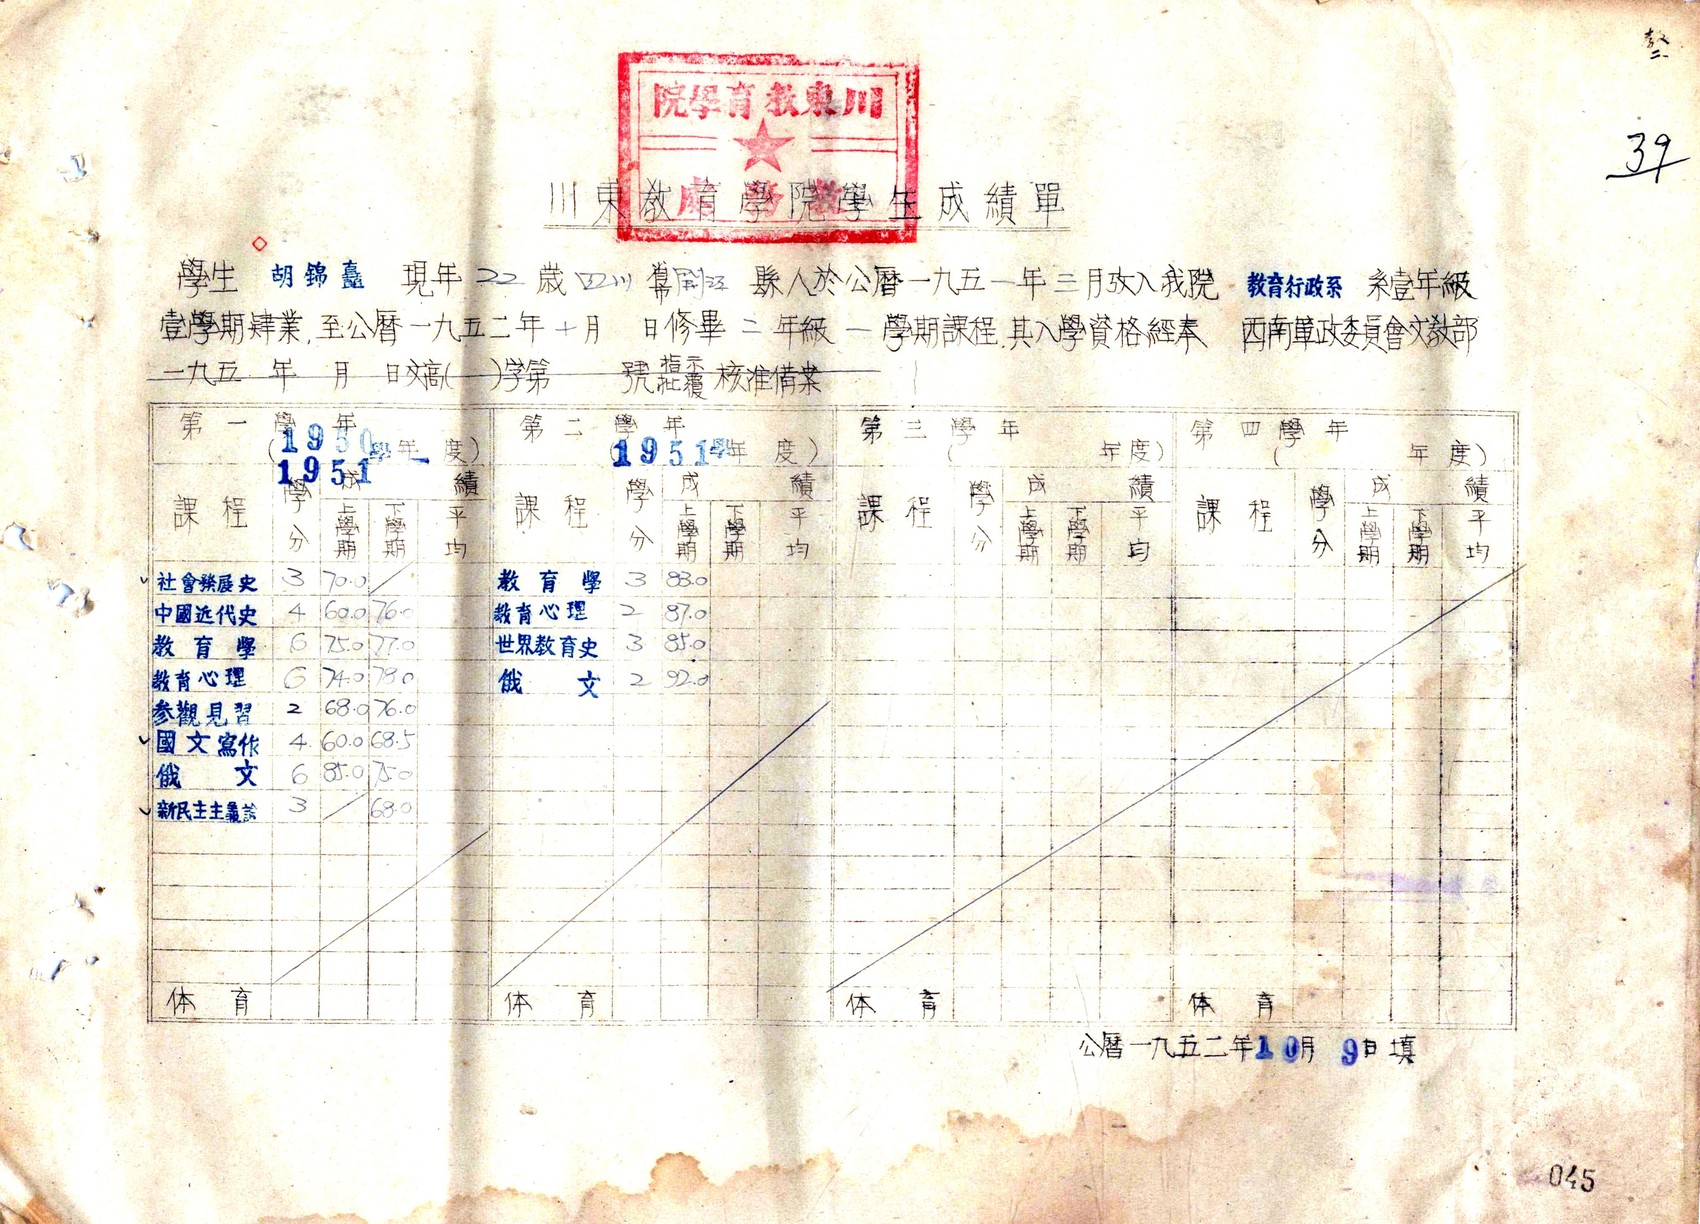 川東教育學院
川東教育學院學生成績單
39
學生 胡錦臺 現年 22 歲 四川 縣人於公曆一九五一年三月攷入我院 教育行政系 系壹年級
壹學期肄業,至公曆一九五二年十月 日修畢二年級一學期課程,其入學資格經奉 西南軍政委員會文教部
一九五 年 月 日文高( )学第 號 指示 批覆 核准備案
第一學年 第二學年 第三學年 第四學年
(1950學年度) (1951學年度) ( 年度) ( 年度)
1951
課程 學分 成績 課程 學分 成績 課程 學分 成績 課程 學分 成績
上學期 下學期 平均 上學期 下學期 平均 上學期 下學期 平均 上學期 下學期 平均
社會發展史 3 70.0 教育學 3 83.0
中國近代史 4 60.0 76.0 教育心理 2 87.0
教育學 6 75.0 77.0 世界教育史 3 85.0
教育心理 6 74.0 78.0 俄文 2 92.0
参觀見習 2 68.0 76.0
國文寫作 4 60.0 68.5
俄文 6 85.0 75.0
新民主主義論 3 68.0
体育 体育 体育 体育
公曆一九五二年10月9日填
045